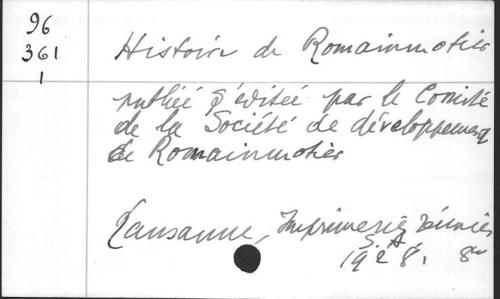 96
361
1
Histoire de Romainmotier
publiée & éditée par le Comité
de la Société de développement
de Romainmotier
Lausanne, Imprimerie réunies
S. A.
1928. 8°